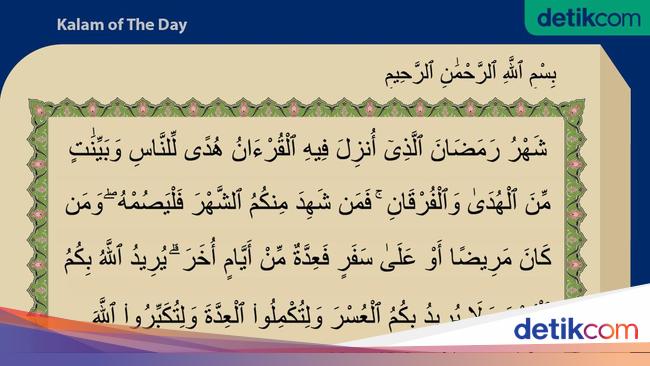 Kalam of The Day
detikcom
بِسْمِ ٱللَّهِ ٱلرَّحْمَٰنِ ٱلرَّحِيمِ
شَهْرُ رَمَضَانَ ٱلَّذِىٓ أُنزِلَ فِيهِ ٱلْقُرْءَانُ هُدًى لِّلنَّاسِ وَبَيِّنَٰتٍ
مِّنَ ٱلْهُدَىٰ وَٱلْفُرْقَانِ ۚ فَمَن شَهِدَ مِنكُمُ ٱلشَّهْرَ فَلْيَصُمْهُ ۖ وَمَن
كَانَ مَرِيضًا أَوْ عَلَىٰ سَفَرٍ فَعِدَّةٌ مِّنْ أَيَّامٍ أُخَرَ ۗ يُرِيدُ ٱللَّهُ بِكُمُ
وَلَا يُرِيدُ بِكُمُ ٱلْعُسْرَ وَلِتُكْمِلُوا۟ ٱلْعِدَّةَ وَلِتُكَبِّرُوا۟ ٱللَّهَ
detikcom